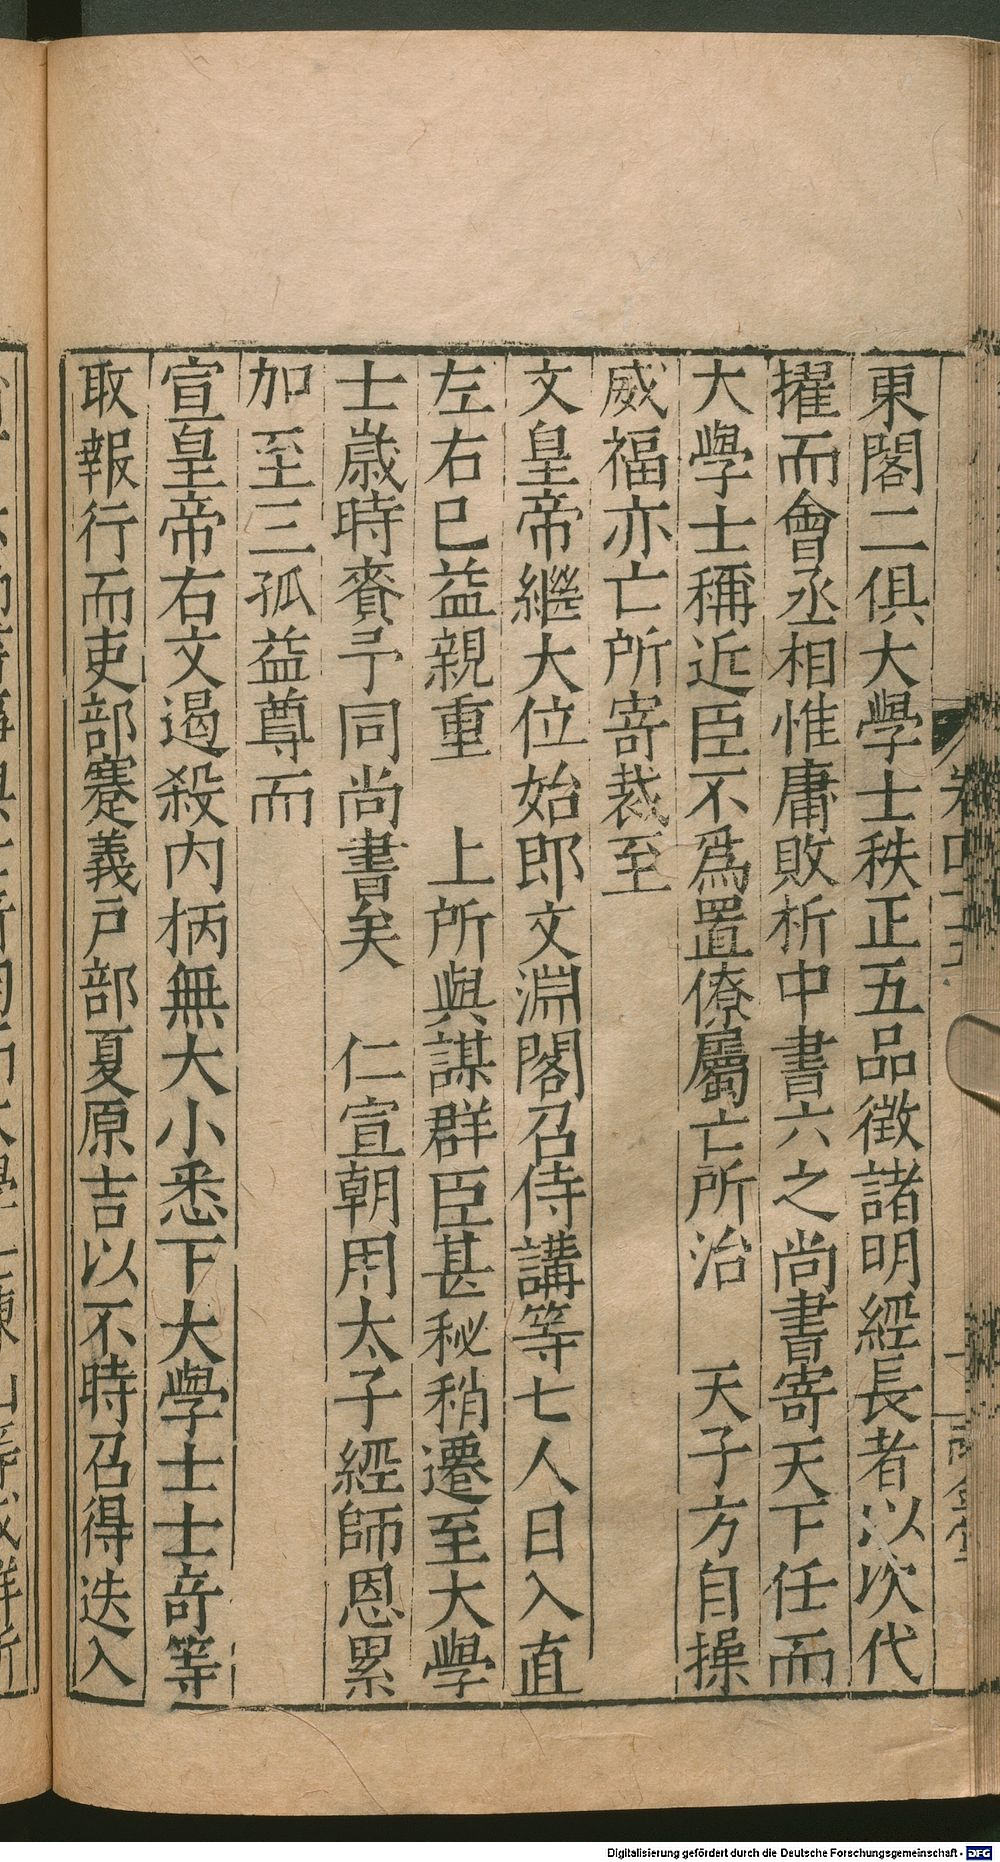 東閣二俱大學士秩正五品徵諸明經長者以次代
擢而會丞相惟庸敗析中書六之尚書寄天下任而
大學士稱近臣不爲置僚屬亡所治　天子方自操
威福亦亡所寄裁至
文皇帝繼大位始即文淵閣召侍講等七人日入直
左右巳益親重　上所與謀群臣甚秘稍遷至大學
士歲時賚予同尚書矣　仁宣朝用太子經師恩累
加至三孤益尊而
宣皇帝右文遏殺内柄無大小悉下大學士士竒等
取報行而吏部蹇義戶部夏原吉以不時召得迭入
Digitalisierung gefördert durch die Deutsche Forschungsgemeinschaft - DFG